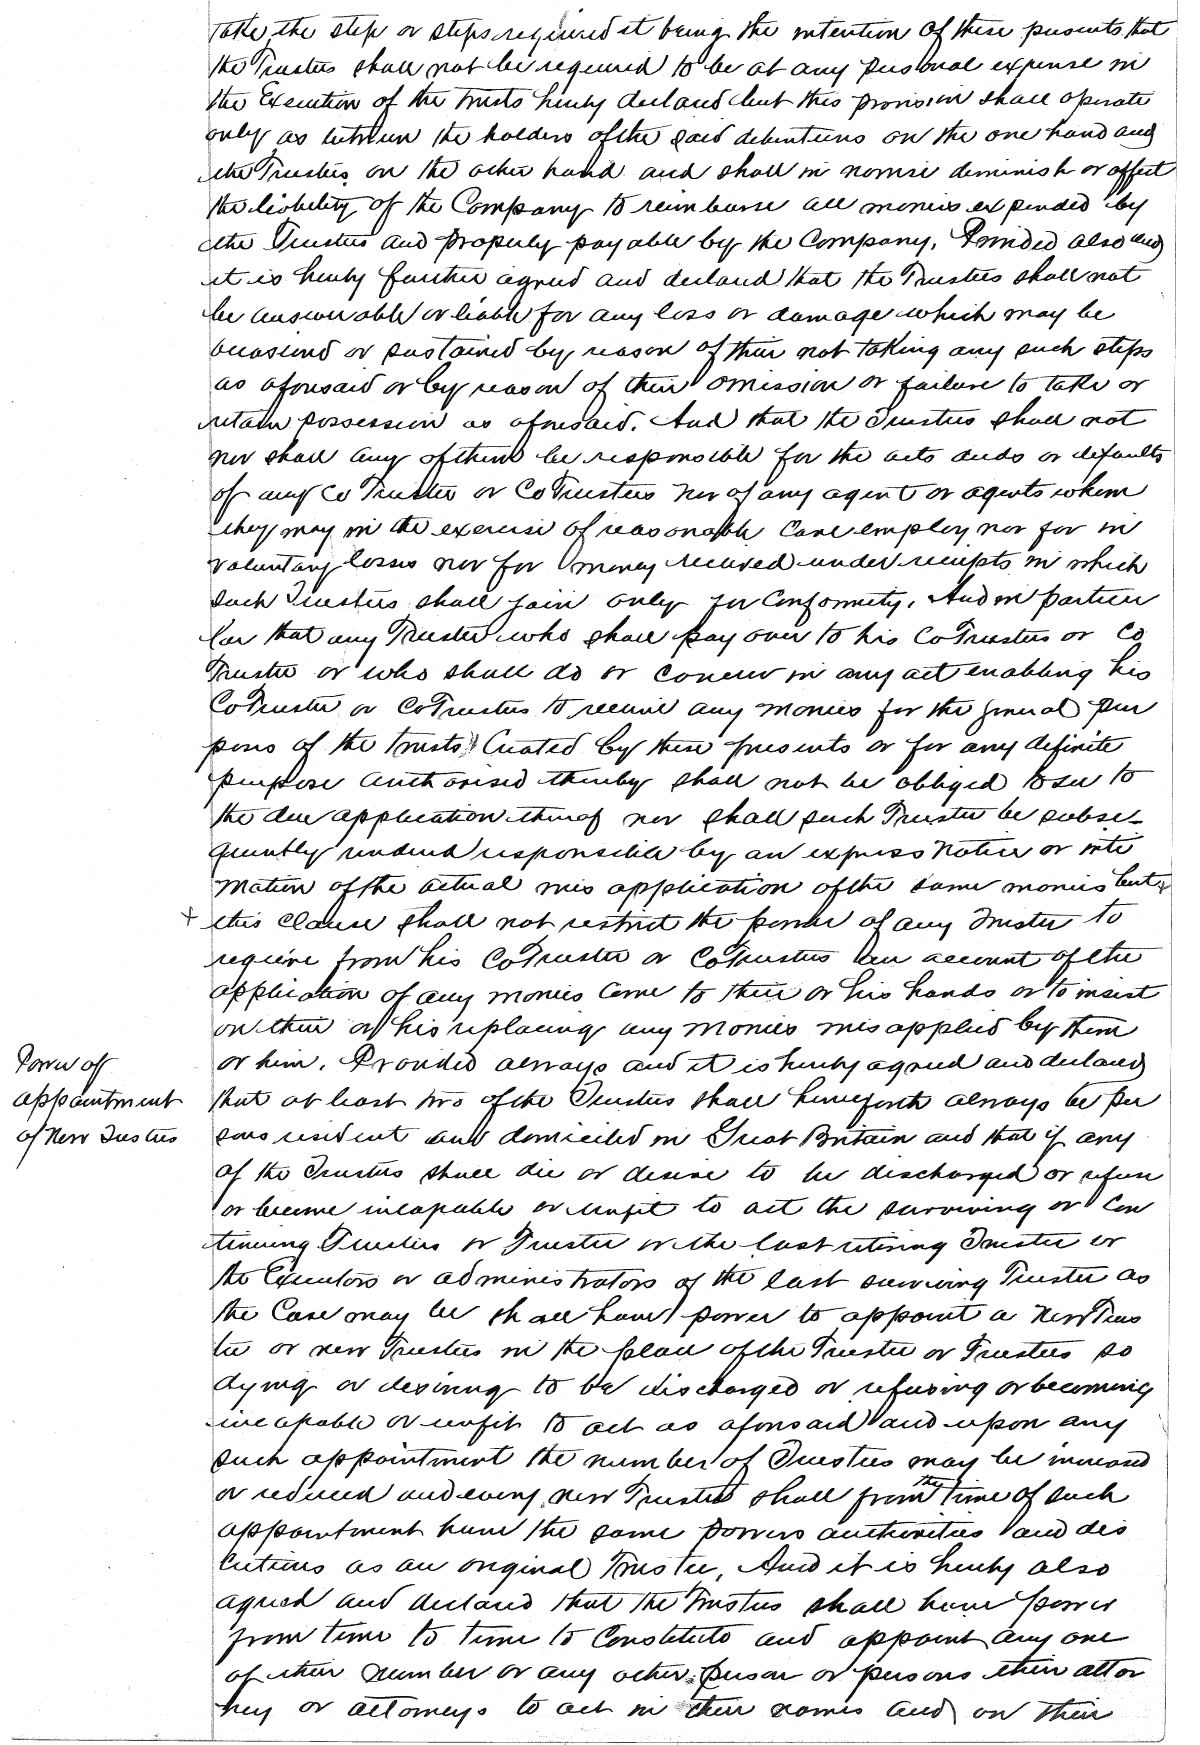 take the step or steps required it being the intention of these presents that
the Trustees shall not be required to be at any personal expense in
the Execution of the trusts hereby declared but this provision shall operate
only as between the holders of the said debentures on the one hand and
the Trustees on the other hand and shall in nowise diminish or affect
the liability of the Company to reimburse all monies expended by
the Trustees and properly payable by the Company. Provided also and
it is hereby further agreed and declared that the Trustees shall not
be answerable or liable for any loss or damage which may be
occasioned or sustained by reason of their not taking any such steps
as aforesaid or by reason of their omission or failure to take or
retain possession as aforesaid. And that the Trustees shall not
nor shall any of them be responsible for the acts deeds or defaults
of any Co Trustee or CoTrustees nor of any agent or agents whom
they may in the exercise of reasonable care employ nor for in
voluntary losses nor for money received under receipts in which
such Trustees shall join only for Conformity. And in particu
lar that any Trustee who shall pay over to his CoTrustees or Co
Trustee or who shall do or concur in any act enabling his
CoTrustee or CoTrustees to receive any monies for the general pur
poses of the trusts Created by these presents or for any definite
purpose authorised thereby shall not be obliged to see to
the due application thereof nor shall such Trustee be subse-
quently rendered responsible by an express Notice or inti
mation of the actual mis application of the same monies but x
+ this clause shall not restrict the power of any Trustee to
require from his CoTrustee or CoTrustees an account of the
application of any monies come to their or his hands or to insist
on their or his replacing any monies mis applied by them
or him. Provided always and it is hereby agreed and declared
Power of
appointment
of New Trustees
that at least two of the Trustees shall henceforth always be per
sons resident and domiciled in Great Britain and that if any
of the Trustees shall die or desire to be discharged or refuse
or become incapable or unfit to act the surviving or con
tinuing Trustees or Trustee or the last retiring Trustee or
the Executors or administrators of the last surviving Trustee as
the Case may be shall have power to appoint a new Trus
tee or new Trustees in the place of the Trustee or Trustees so
dying or desiring to be discharged or refusing or becoming
incapable or unfit to act as aforesaid and upon any
such appointment the number of Trustees may be increased
or reduced and every new Trustee shall from the time of such
appointment have the same powers authorities and dis
cretions as an original Trustee. And it is hereby also
agreed and declared that the Trustees shall have power
from time to time to Constitute and appoint any one
of their number or any other person or persons their attor
ney or attorneys to act in their names and on their